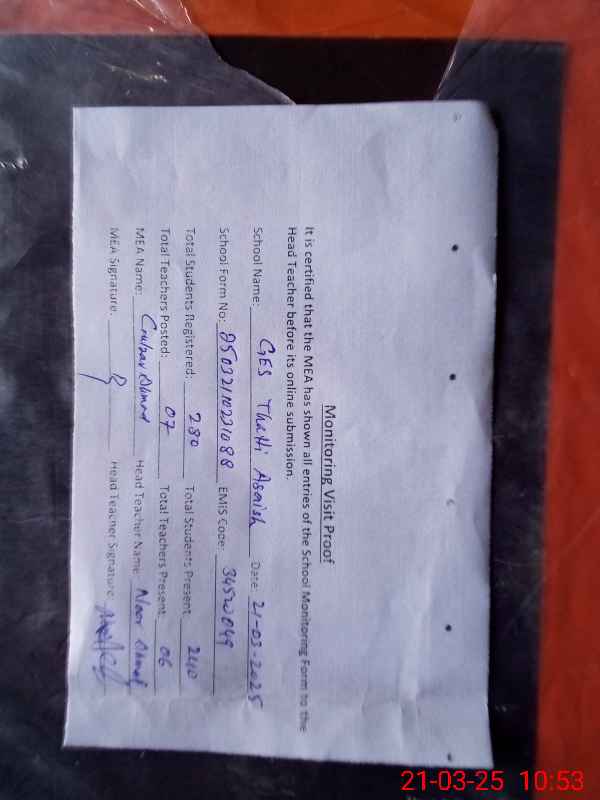 Monitoring Visit Proof
It is certified that the MEA has shown all entries of the School Monitoring Form to the
Head Teacher before its online submission.
School Name: GES Thatti Asaish Date: 21-03-2025
School Form No: 25032110231088 EMIS Code: 34520049
Total Students Registered: 280 Total Students Present: 240
Total Teachers Posted: 07 Total Teachers Present: 06
MEA Name: Ahmad Head Teacher Name: Noor Ahmad
MEA Signature: Head Teacher Signature:
21-03-25 10:53